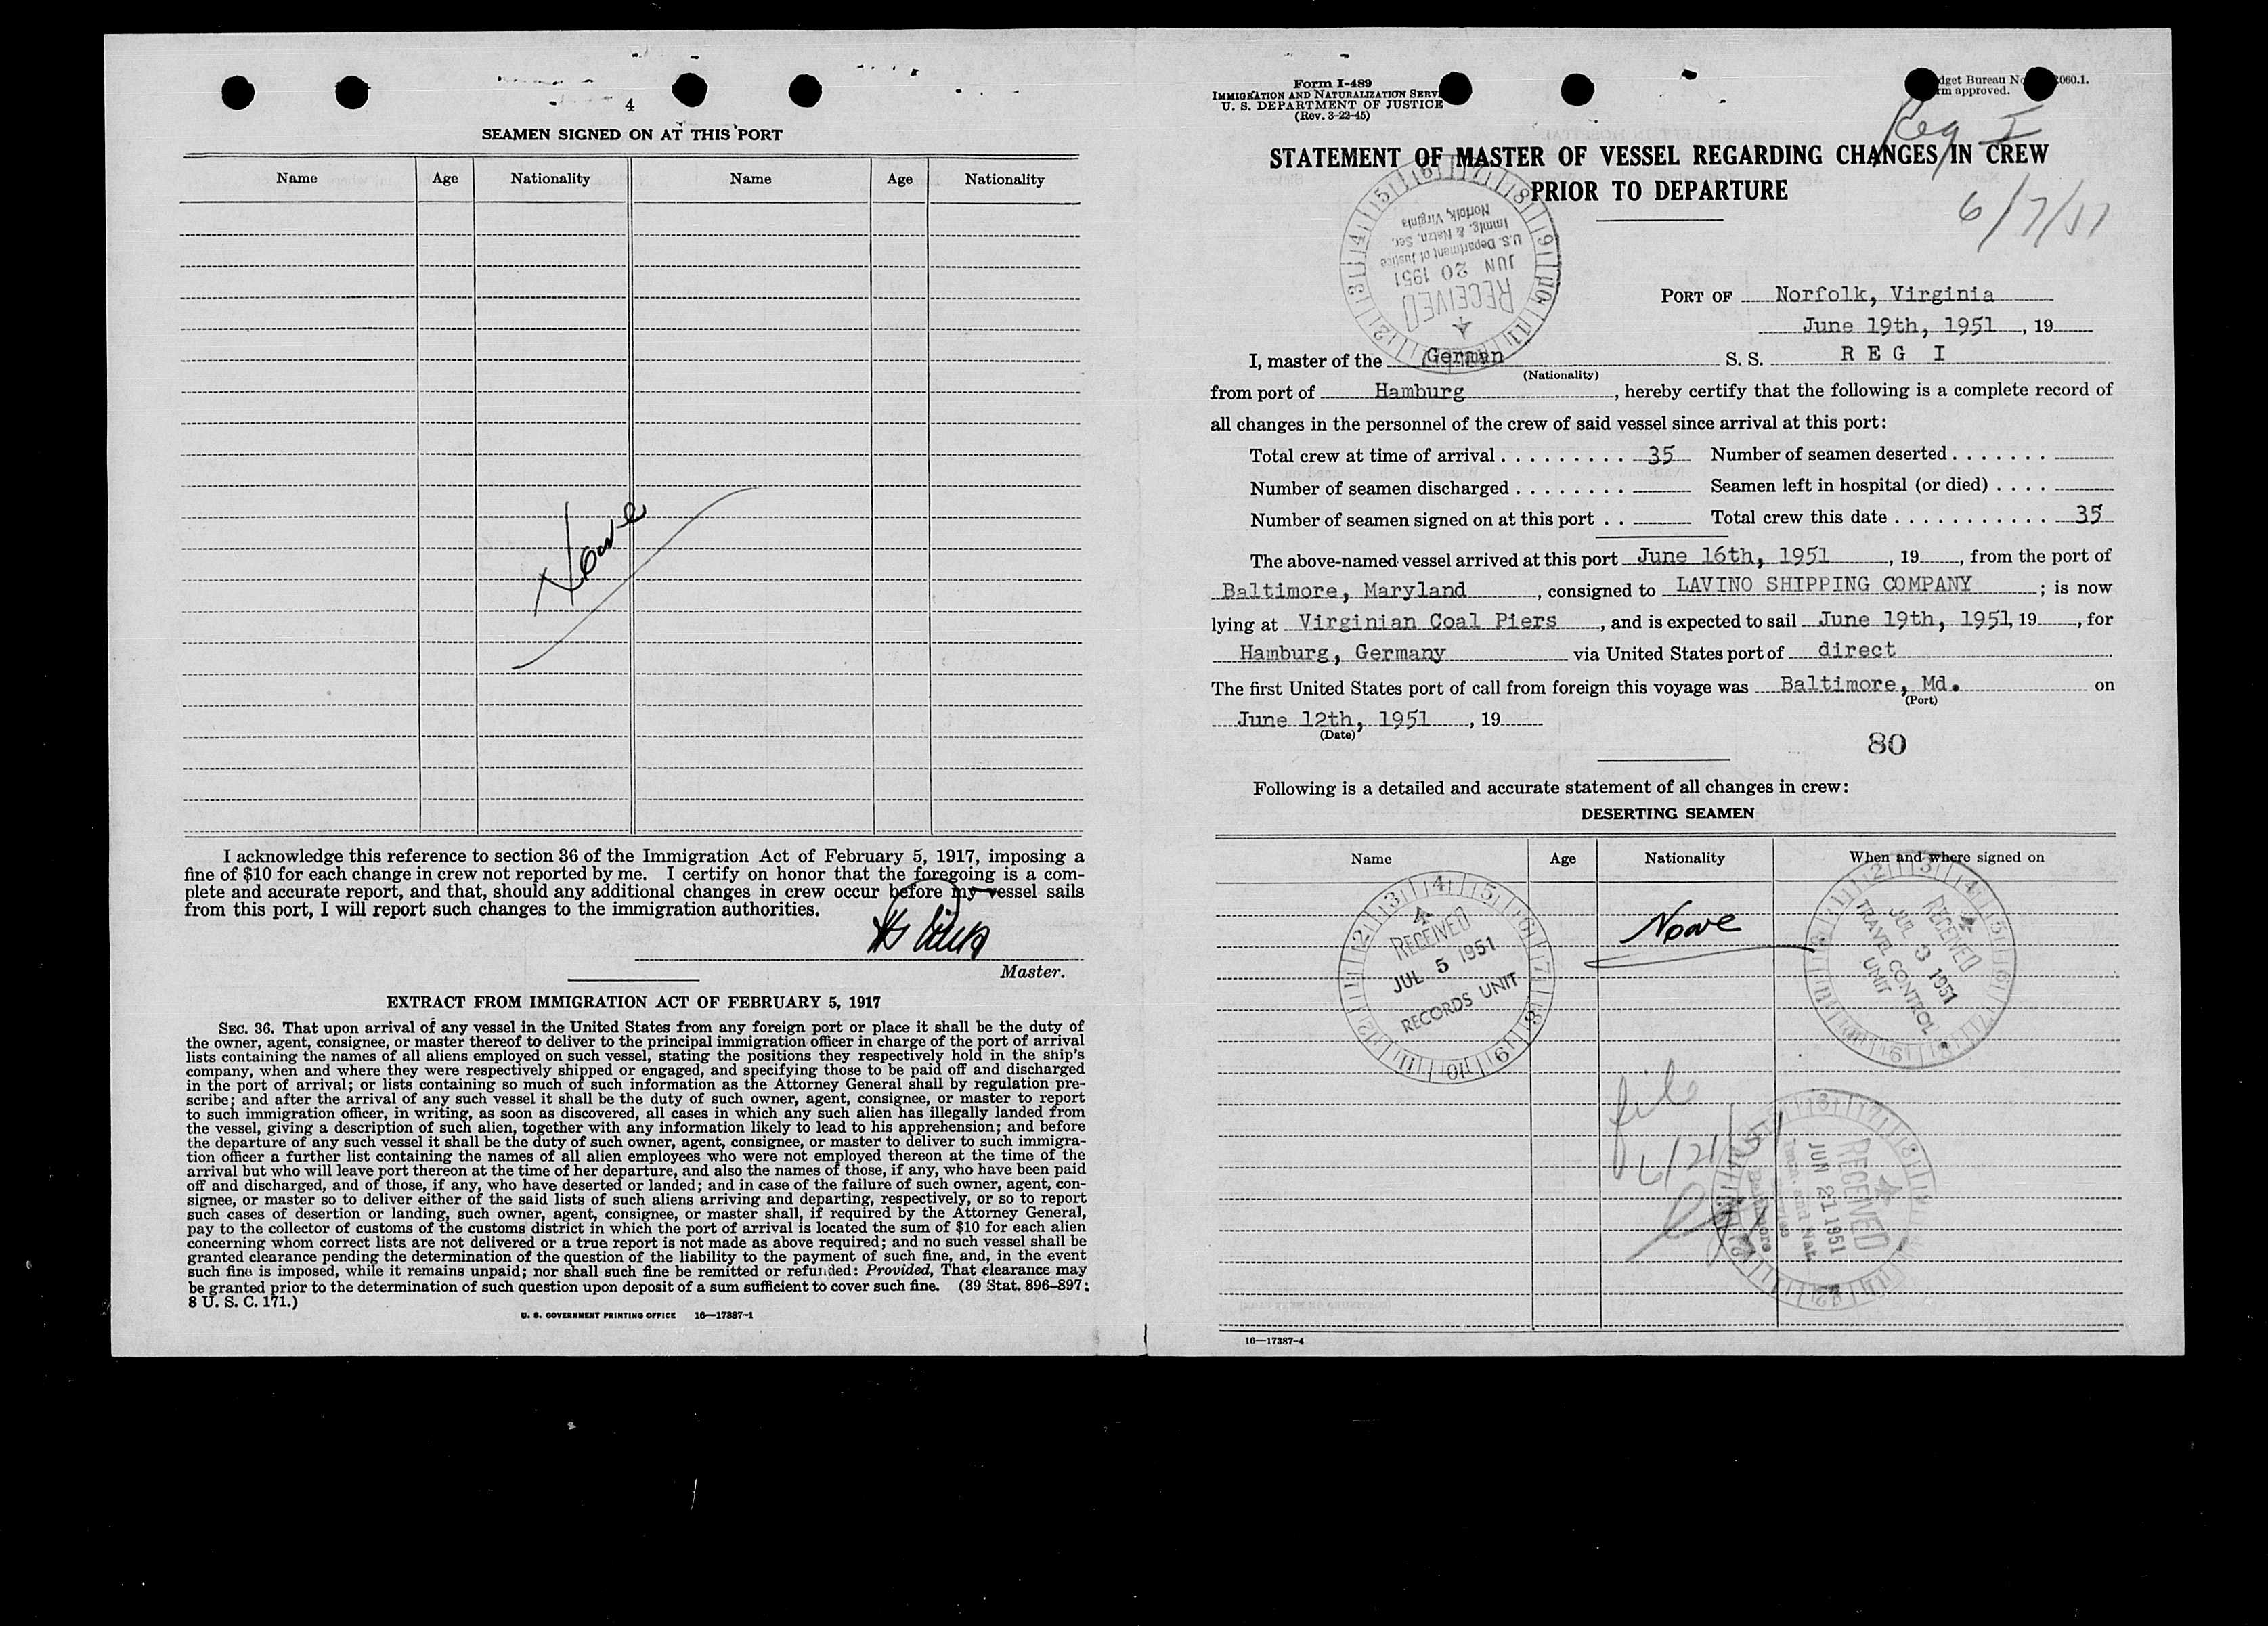 4
SEAMEN SIGNED ON AT THIS PORT
Name Age Nationality Name Age Nationality
None
I acknowledge this reference to section 36 of the Immigration Act of February 5, 1917, imposing a
fine of $10 for each change in crew not reported by me. I certify on honor that the foregoing is a com-
plete and accurate report, and that, should any additional changes in crew occur before my vessel sails
from this port, I will report such changes to the immigration authorities.
Master.
EXTRACT FROM IMMIGRATION ACT OF FEBRUARY 5, 1917
SEC. 36. That upon arrival of any vessel in the United States from any foreign port or place it shall be the duty of
the owner, agent, consignee, or master thereof to deliver to the principal immigration officer in charge of the port of arrival
lists containing the names of all aliens employed on such vessel, stating the positions they respectively hold in the ship's
company, when and where they were respectively shipped or engaged, and specifying those to be paid off and discharged
in the port of arrival; or lists containing so much of such information as the Attorney General shall by regulation pre-
scribe; and after the arrival of any such vessel it shall be the duty of such owner, agent, consignee, or master to report
to such immigration officer, in writing, as soon as discovered, all cases in which any such alien has illegally landed from
the vessel, giving a description of such alien, together with any information likely to lead to his apprehension; and before
the departure of any such vessel it shall be the duty of such owner, agent, consignee, or master to deliver to such immigra-
tion officer a further list containing the names of all alien employees who were not employed thereon at the time of the
arrival but who will leave port thereon at the time of her departure, and also the names of those, if any, who have been paid
off and discharged, and of those, if any, who have deserted or landed; and in case of the failure of such owner, agent, con-
signee, or master so to deliver either of the said lists of such aliens arriving and departing, respectively, or so to report
such cases of desertion or landing, such owner, agent, consignee, or master shall, if required by the Attorney General,
pay to the collector of customs of the customs district in which the port of arrival is located the sum of $10 for each alien
concerning whom correct lists are not delivered or a true report is not made as above required; and no such vessel shall be
granted clearance pending the determination of the question of the liability to the payment of such fine, and, in the event
such fine is imposed, while it remains unpaid; nor shall such fine be remitted or refunded: Provided, That clearance may
be granted prior to the determination of such question upon deposit of a sum sufficient to cover such fine. (39 Stat. 896-897;
8 U. S. C. 171.)
U. S. GOVERNMENT PRINTING OFFICE 16—17387-1
Form I-489
IMMIGRATION AND NATURALIZATION SERV
U. S. DEPARTMENT OF JUSTICE
(Rev. 3-22-45)
dget Bureau No 060.1.
rm approved.
Reg I
STATEMENT OF MASTER OF VESSEL REGARDING CHANGES IN CREW
PRIOR TO DEPARTURE
6/7/51
RECEIVED
JUN 20 1951
U.S. Department of Justice
Immig. & Natzn. Ser.
Norfolk, Virginia
PORT OF Norfolk, Virginia
June 19th, 1951, 19
I, master of the German S. S. REG I
(Nationality)
from port of Hamburg, hereby certify that the following is a complete record of
all changes in the personnel of the crew of said vessel since arrival at this port:
Total crew at time of arrival . . . . . . . . . 35 Number of seamen deserted . . . . . . .
Number of seamen discharged . . . . . . . . Seamen left in hospital (or died) . . . .
Number of seamen signed on at this port . . Total crew this date . . . . . . . . . . . . 35
The above-named vessel arrived at this port June 16th, 1951, 19, from the port of
Baltimore, Maryland, consigned to LAVINO SHIPPING COMPANY; is now
lying at Virginian Coal Piers, and is expected to sail June 19th, 1951, 19, for
Hamburg, Germany via United States port of direct
The first United States port of call from foreign this voyage was Baltimore, Md. on
(Port)
June 12th, 1951, 19
(Date)
80
Following is a detailed and accurate statement of all changes in crew:
DESERTING SEAMEN
Name Age Nationality When and where signed on
None
RECEIVED
JUL 5 1951
RECORDS UNIT
RECEIVED
JUL 3 1951
TRAVEL CONTROL
UNIT
file
6/21/51
RECEIVED
JUN 21 1951
Imm. and Nat.
Service
Baltimore
16—17387-4